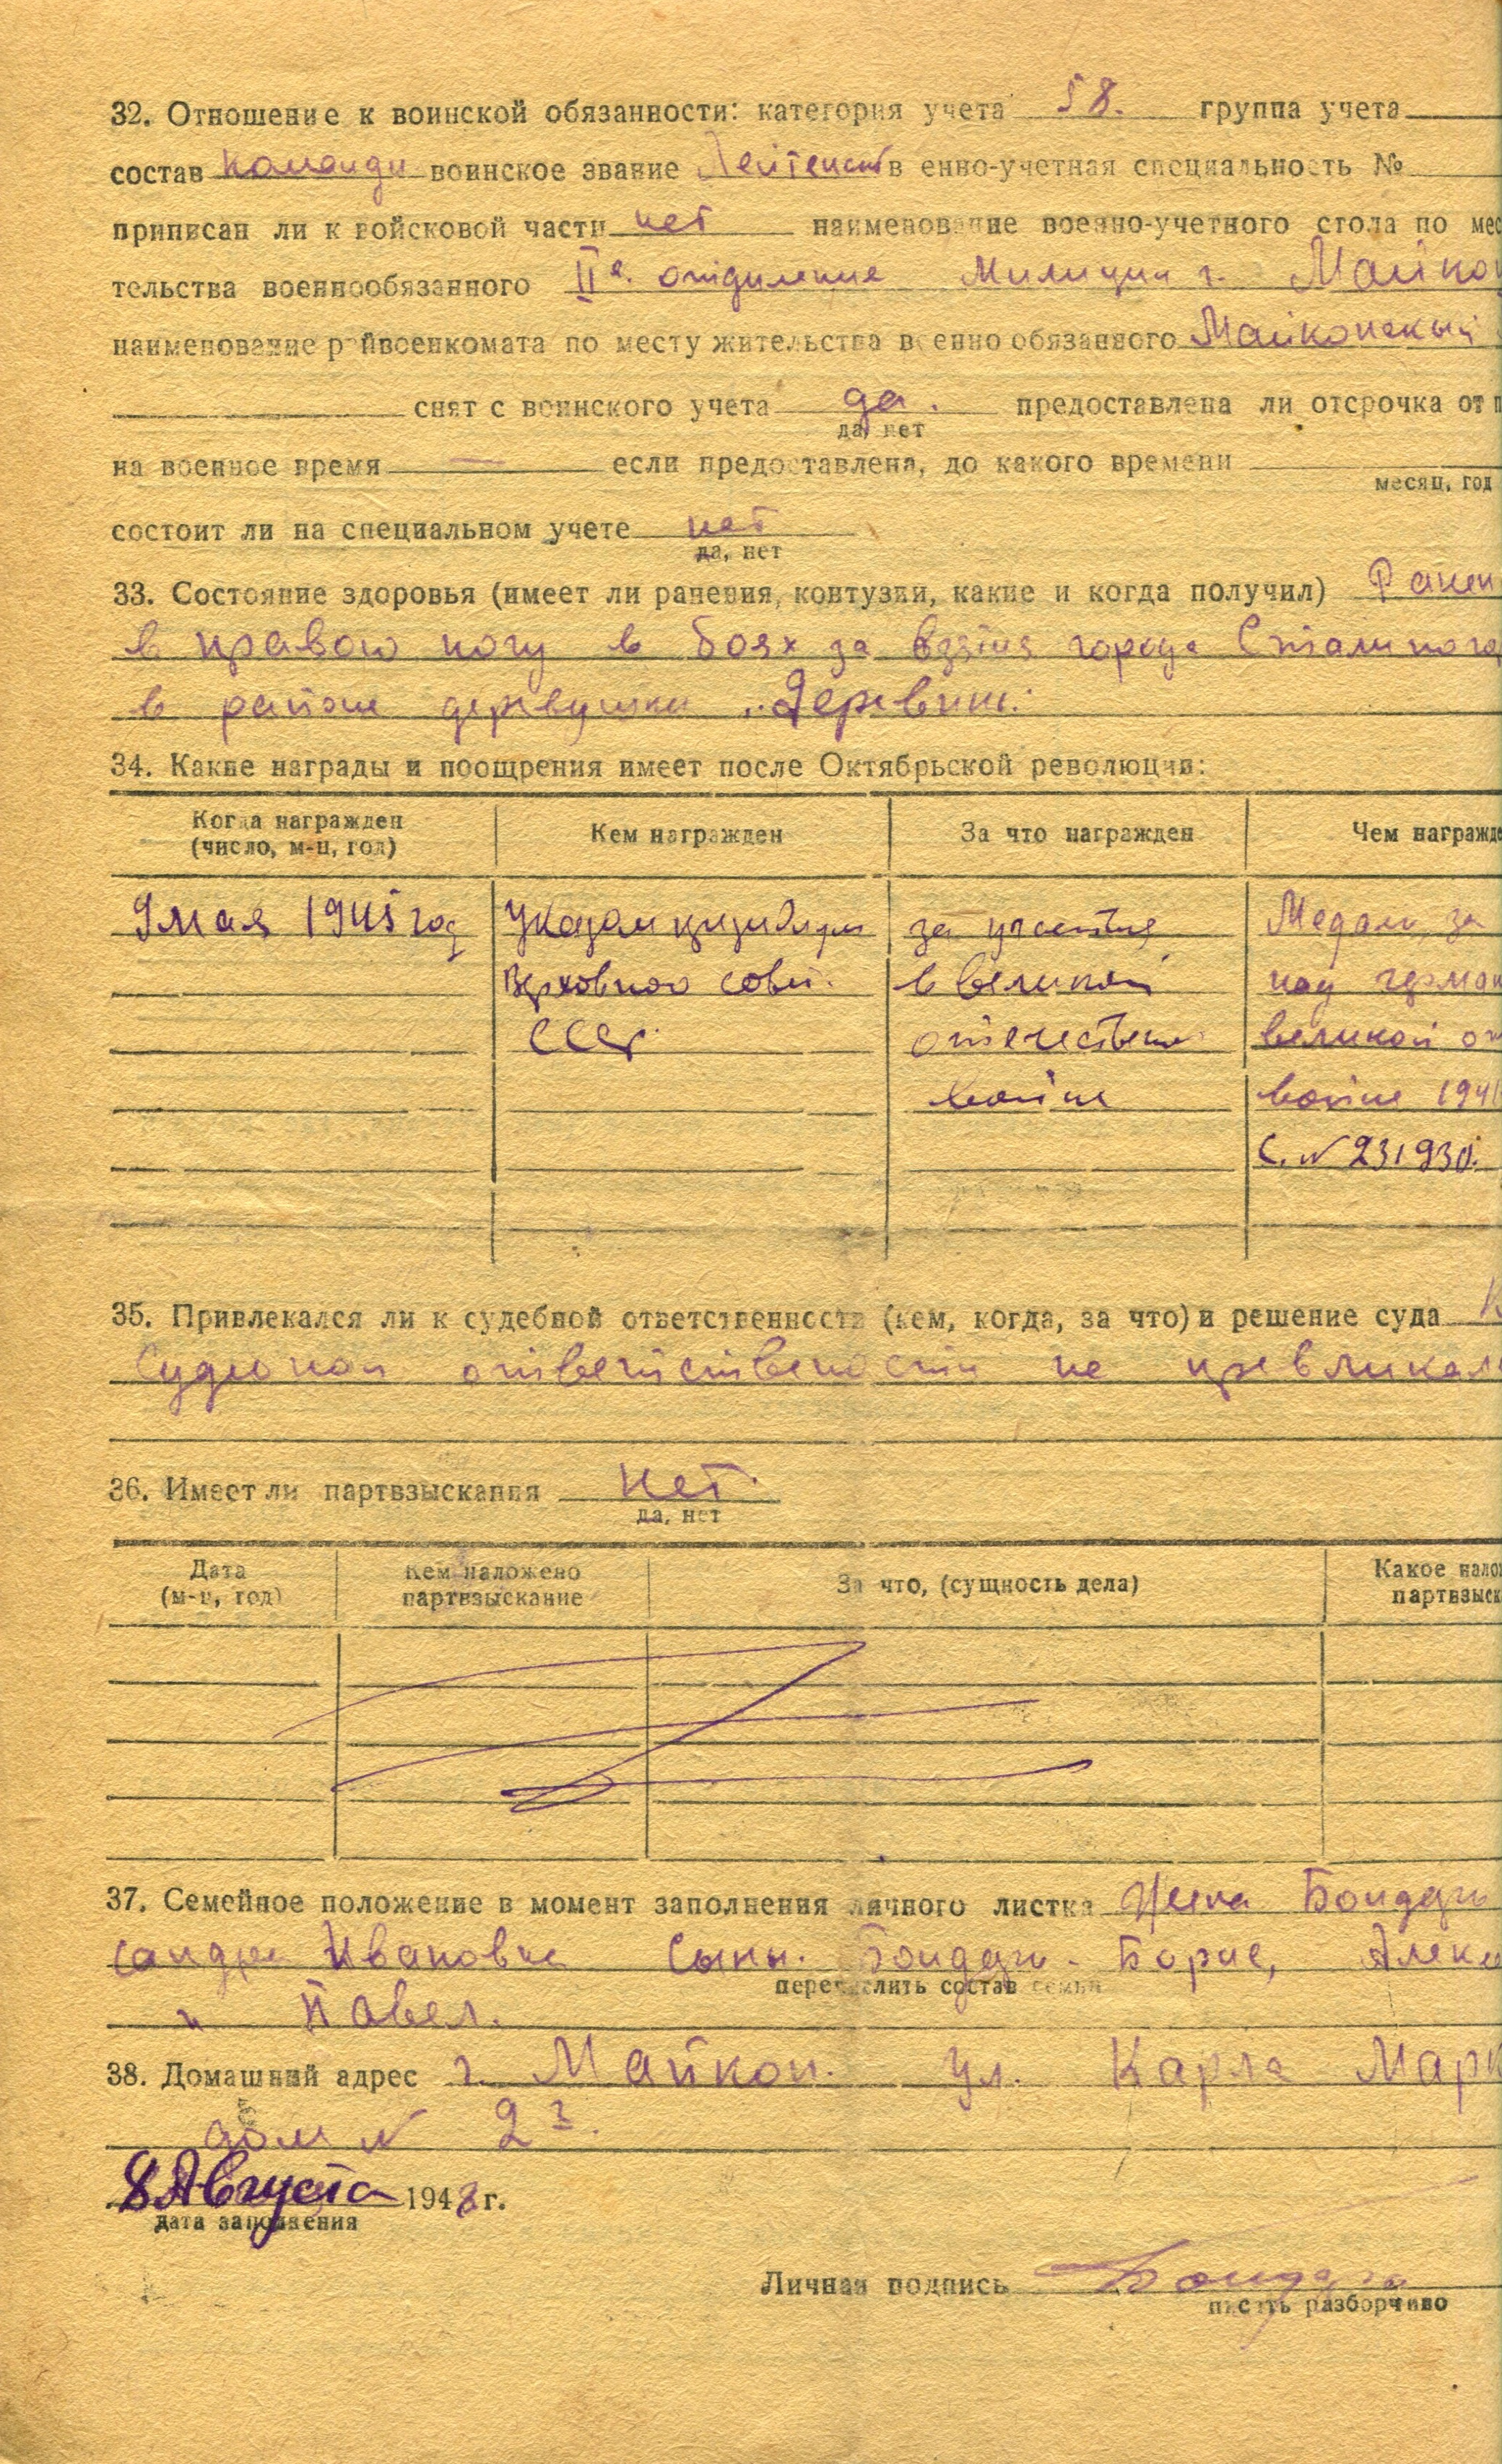 32. Отношение к воинской обязанности: категория учета 58. группа учета
состав командн воинское звание Лейтенант в енно-учетная специальность №
приписан ли к войсковой части нет наименование военно-учетного стола по мес
тельства военнообязанного IIе. отделение Милиции г. Майко
наименование р йвоенкомата по месту жительства военно обязанного Майкопский
снят с воинского учета да. предоставлена ли отсрочка от п
да, нет
на военное время — если предоставлена, до какого времени
месяц, год
состоит ли на специальном учете нет
да, нет
33. Состояние здоровья (имеет ли ранения, контузии, какие и когда получил) Ранен
в правою ногу в боях за взятия города Сталиног
в районе деревушки
34. Какие награды и поощрения имеет после Октябрьской революции:
Когда награжден Кем награжден За что награжден Чем награжде
(число, м-ц, год)
9 мая 1945 год Указом призидиум за участия Медаль за
Верховного совет. в великой над герман
СССР. отечествен. великой от
войне войне 194
С. № 231930.
35. Привлекался ли к судебной ответственности (кем, когда, за что) и решение суда К
ответствености не превликал
36. Имеет ли партвзыскания нет.
да, нет
Дата Кем наложено За что, (сущность дела) Какое нало
(м-ц, год) партвзыскание партвзыск
37. Семейное положение в момент заполнения личного листка Жена Бондарь
сандра Ивановна Сыны. Бондарь - Борис, Алекс
перечислить состав семьи
и Павел.
38. Домашний адрес г. Майкоп. ул. Карла Марк
дом № 23.
8 Августа 1948 г.
дата заполнения
Личная подпись Бондарь
писать разборчиво